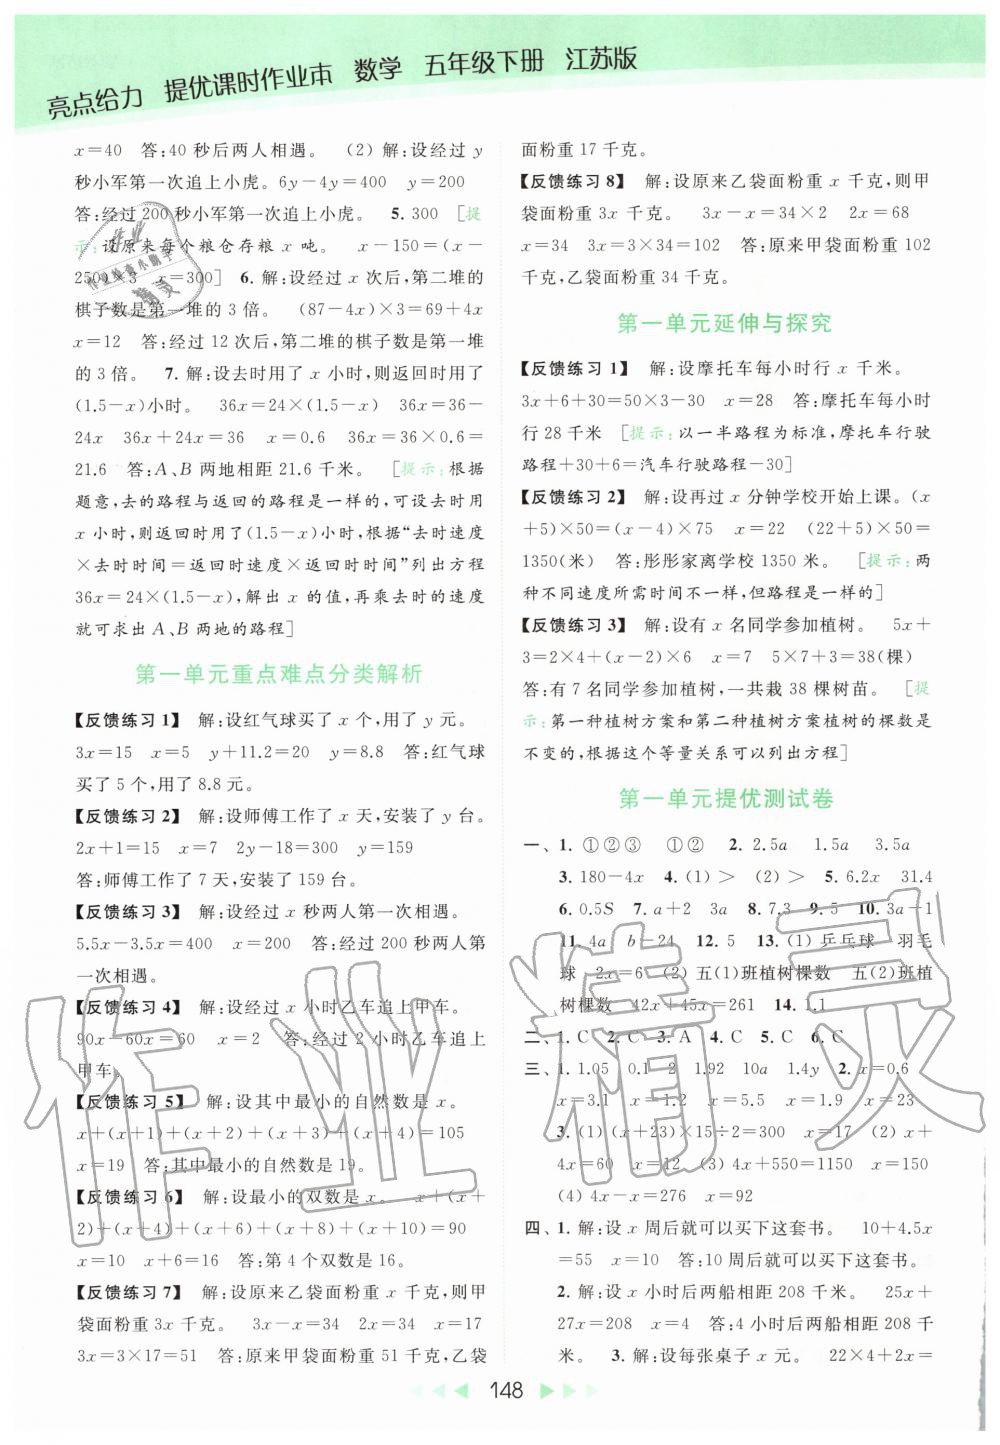 亮点给力 提优课时作业本 数学 五年级下册 江苏版
x=40 答:40 秒后两人相遇。 (2) 解:设经过 y
秒小军第一次追上小虎。6y-4y=400 y=200
答:经过 200 秒小军第一次追上小虎。 5. 300 [提
示:设原来每个粮仓存粮 x 吨。 x-150=(x-
250)×3 x=300] 6. 解:设经过 x 次后,第二堆的
棋子数是第一堆的 3 倍。 (87-4x)×3=69+4x
x=12 答:经过 12 次后,第二堆的棋子数是第一堆
的 3 倍。 7. 解:设去时用了 x 小时,则返回时用了
(1.5-x)小时。 36x=24×(1.5-x) 36x=36-
24x 36x+24x=36 x=0.6 36x=36×0.6=
21.6 答:A、B 两地相距 21.6 千米。 [提示:根据
题意,去的路程与返回的路程是一样的,可设去时用
x 小时,则返回时用了(1.5-x)小时,根据“去时速度
×去时时间=返回时速度×返回时时间”列出方程
36x=24×(1.5-x),解出 x 的值,再乘去时的速度
就可求出 A、B 两地的路程]
第一单元重点难点分类解析
【反馈练习 1】 解:设红气球买了 x 个,用了 y 元。
3x=15 x=5 y+11.2=20 y=8.8 答:红气球
买了 5 个,用了 8.8 元。
【反馈练习 2】 解:设师傅工作了 x 天,安装了 y 台。
2x+1=15 x=7 2y-18=300 y=159
答:师傅工作了 7 天,安装了 159 台。
【反馈练习 3】 解:设经过 x 秒两人第一次相遇。
5.5x-3.5x=400 x=200 答:经过 200 秒两人第
一次相遇。
【反馈练习 4】 解:设经过 x 小时乙车追上甲车。
90x-60x=60 x=2 答:经过 2 小时乙车追上
甲车。
【反馈练习 5】 解:设其中最小的自然数是 x。
x+(x+1)+(x+2)+(x+3)+(x+4)=105
x=19 答:其中最小的自然数是 19。
【反馈练习 6】 解:设最小的双数是 x。 x+(x+
2)+(x+4)+(x+6)+(x+8)+(x+10)=90
x=10 x+6=16 答:第 4 个双数是 16。
【反馈练习 7】 解:设原来乙袋面粉重 x 千克,则甲
袋面粉重 3x 千克。 3x-x=34 2x=34 x=17
3x=3×17=51 答:原来甲袋面粉重 51 千克,乙袋
面粉重 17 千克。
【反馈练习 8】 解:设原来乙袋面粉重 x 千克,则甲
袋面粉重 3x 千克。 3x-x=34×2 2x=68
x=34 3x=3×34=102 答:原来甲袋面粉重 102
千克,乙袋面粉重 34 千克。
第一单元延伸与探究
【反馈练习 1】 解:设摩托车每小时行 x 千米。
3x+6+30=50×3-30 x=28 答:摩托车每小时
行 28 千米 [提示:以一半路程为标准,摩托车行驶
路程+30+6=汽车行驶路程-30]
【反馈练习 2】 解:设再过 x 分钟学校开始上课。(x
+5)×50=(x-4)×75 x=22 (22+5)×50=
1350(米) 答:彤彤家离学校 1350 米。 [提示:两
种不同速度所需时间不一样,但路程是一样的]
【反馈练习 3】 解:设有 x 名同学参加植树。 5x+
3=2×4+(x-2)×6 x=7 5×7+3=38(棵)
答:有 7 名同学参加植树,一共栽 38 棵树苗。 [提
示:第一种植树方案和第二种植树方案植树的棵数是
不变的,根据这个等量关系可以列出方程]
第一单元提优测试卷
一、1. ①②③ ①② 2. 2.5a 1.5a 3.5a
3. 180-4x 4. (1) > (2) > 5. 6.2x 31.4
6. 0.5S 7. a+2 3a 8. 7.3 9. 5 10. 3a-1
11. 4a b-24 12. 5 13. (1) 乒乓球 羽毛
球 2x=6 (2) 五(1)班植树棵数 五(2)班植
树棵数 42x+45x=261 14. 1.1
二、1. C 2. C 3. A 4. C 5. C 6. C
三、1. 1.05 0.1 2 1.92 10a 1.4y 2. x=0.6
x=3.1 x=1.2 x=5.5 x=1.9 x=23
3. (1) (x+23)×15÷2=300 x=17 (2) x+
4x=60 x=12 (3) 4x+550=1150 x=150
(4) 4x-x=276 x=92
四、1. 解:设 x 周后就可以买下这套书。 10+4.5x
=55 x=10 答:10 周后可以买下这套书。
2. 解:设 x 小时后两船相距 208 千米。 25x+
27x=208 x=4 答:4 小时后两船相距 208 千
米。 3. 解:设每张桌子 x 元。 22×4+2x=
148
作业精灵